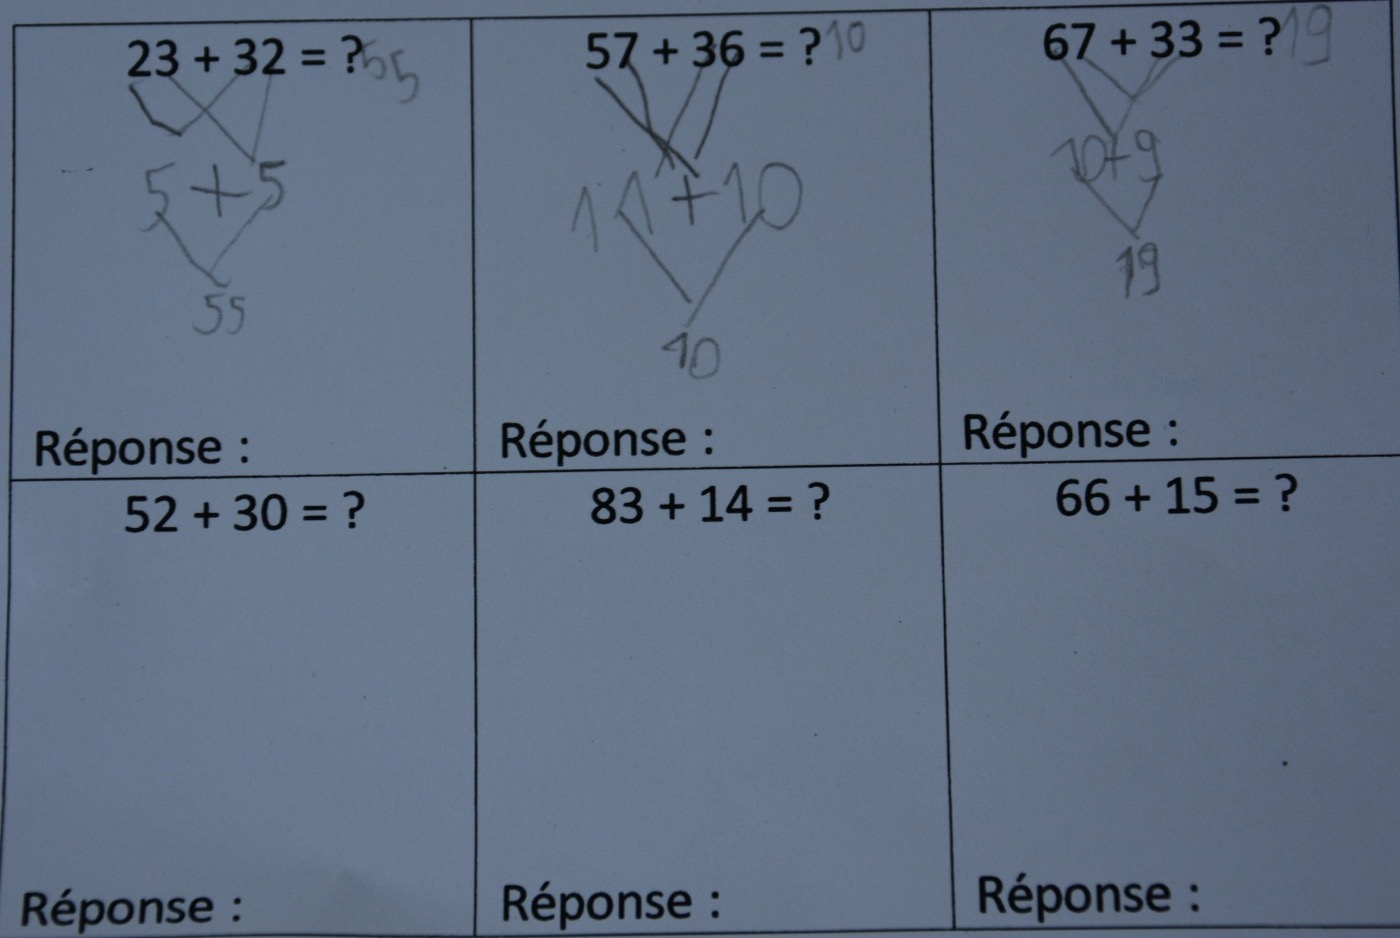 23 + 32 = ? 55
5 + 5
55
Réponse :
57 + 36 = ? 10
11 + 10
10
Réponse :
67 + 33 = ? 19
10+9
19
Réponse :
52 + 30 = ?
Réponse :
83 + 14 = ?
Réponse :
66 + 15 = ?
Réponse :